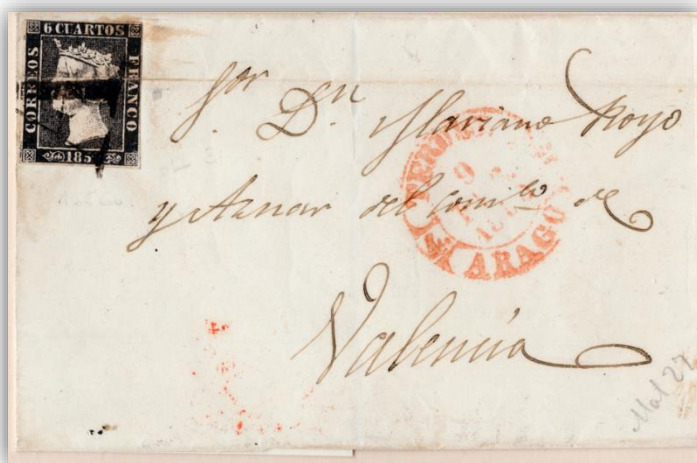 6 CUARTOS
CORREOS
FRANCO
185
Sor Dn Mariano Royo
y Aznar del como. de
Valencia
TERU
9
ARAGO